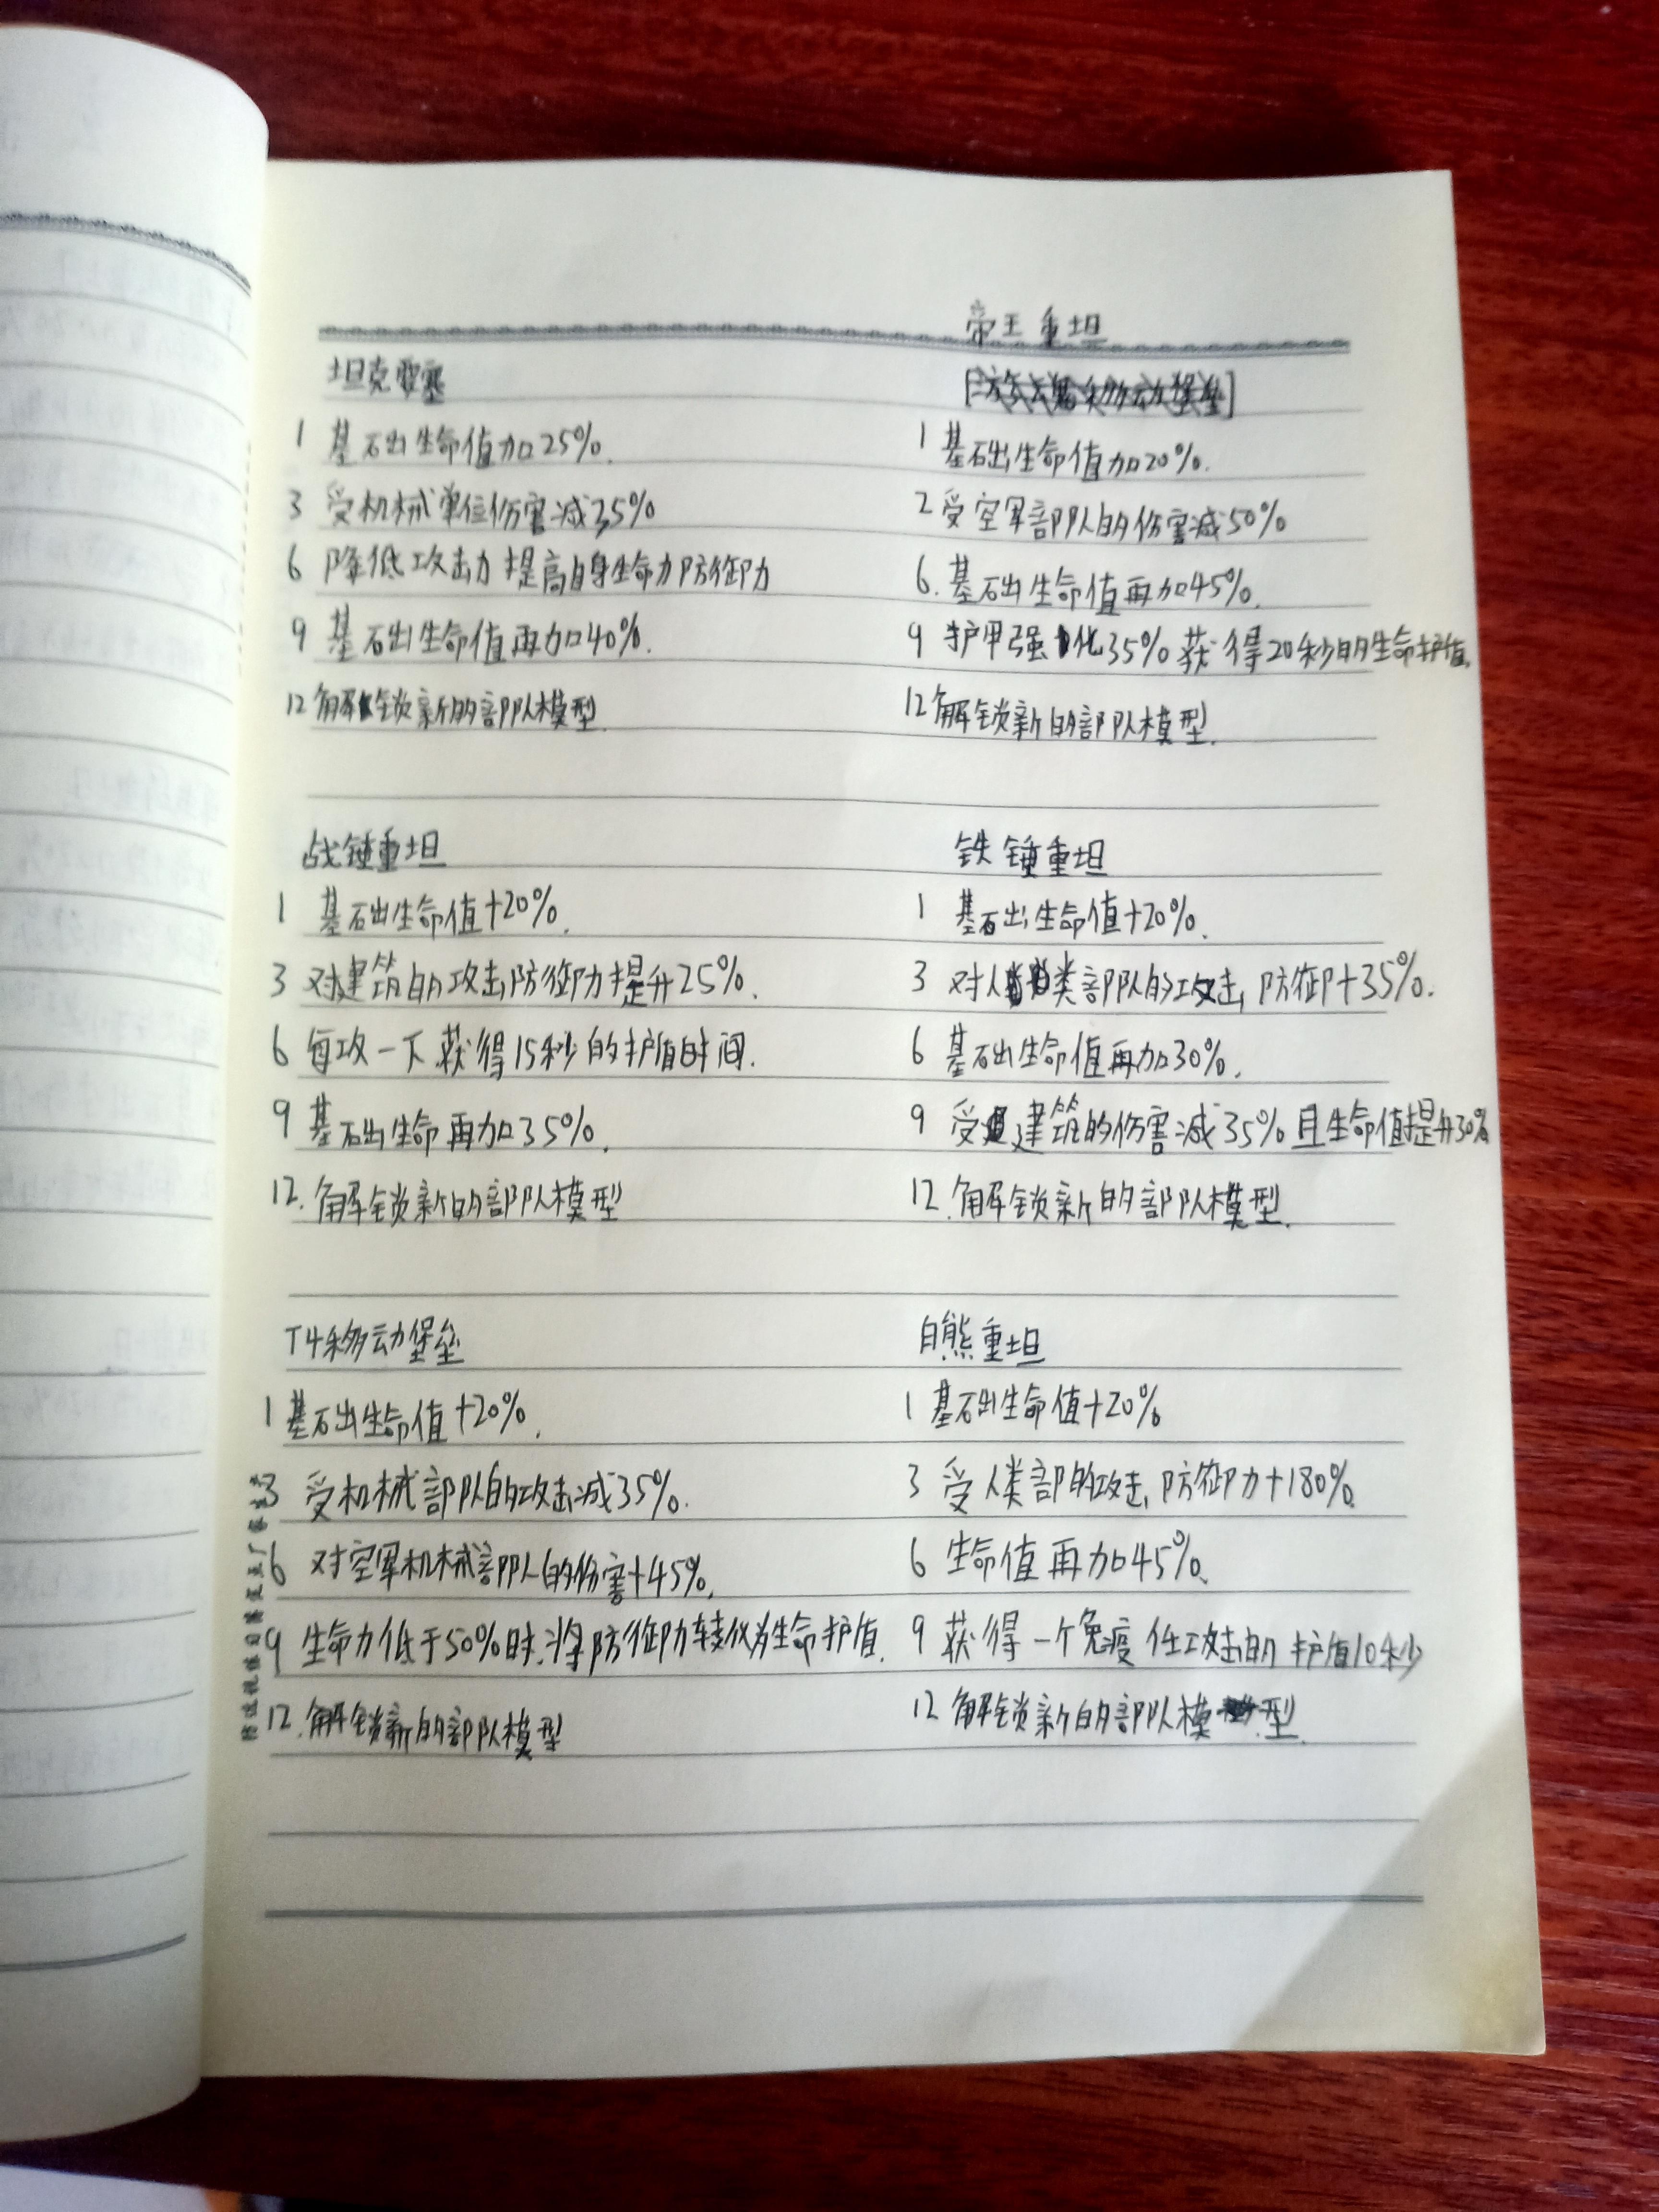 坦克要塞
1 基础生命值加25%.
3 受机械单位伤害减35%
6 降低攻击力提高自身生命力防御力
9 基础生命值再加40%.
12 解锁新的部队模型.
帝王重坦
1 基础生命值加20%.
2 受空军部队的伤害减50%
6. 基础生命值再加45%.
9 护甲强化35%获得20秒的生命护值.
12 解锁新的部队模型.
战锤重坦
1 基础生命值+20%.
3 对建筑的攻击防御力提升25%.
6 每攻一下获得15秒的护盾时间.
9 基础生命再加35%.
12. 解锁新的部队模型
铁锤重坦
1 基础生命值+20%.
3 对人类部队的攻击,防御+35%.
6 基础生命值再加30%.
9 受建筑的伤害减35%且生命值提升30%
12. 解锁新的部队模型.
T4移动堡垒
1 基础生命值+20%.
3 受机械部队的攻击减35%.
6 对空军机械部队的伤害+45%.
9 生命力低于50%时.将防御力转化为生命护盾.
12. 解锁新的部队模型
白熊重坦
1 基础生命值+20%
3 受人类部的攻击,防御力+180%.
6 生命值再加45%.
9 获得一个免疫任攻击的护盾10秒
12 解锁新的部队模型.